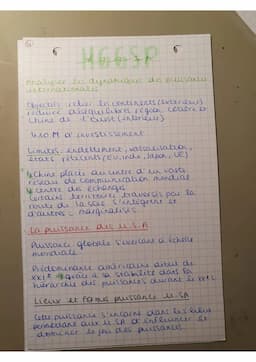 HGGSP
Analyser les dynamiques des puissances
internationales
Objectifs: relier les continents (extérieur)
réduire déséquilibres région côtière et
Chine de l'Ouest (intérieur)
d'investissement
Limites: endettement, vassalisation,
États réticents (EU, Inde, Japon, UE)
Chine placée au centre d'un vaste
réseau de communication mondial
centre des échanges
Certains territoires traversés par la
route de la soie s'intègrent et
d'autres marginalisés
La puissance des U.S.A
Puissance globale s'exerçant à échelle
mondiale
Prédominance américaine début du
XXIe grâce à sa stabilité dans la
hiérarchie des puissances durant le XXe
Lieux et forme puissance USA
Cette puissance s'incarne dans les lieux
permettant aux USA d'influencer et
dominer le jeu des puissances